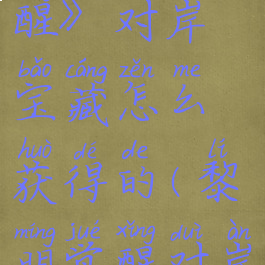 醒》对岸
bǎo cáng zěn me
宝藏怎么
huò dé de lí
获得的(黎
míng jué xǐng duì àn
明觉醒对岸